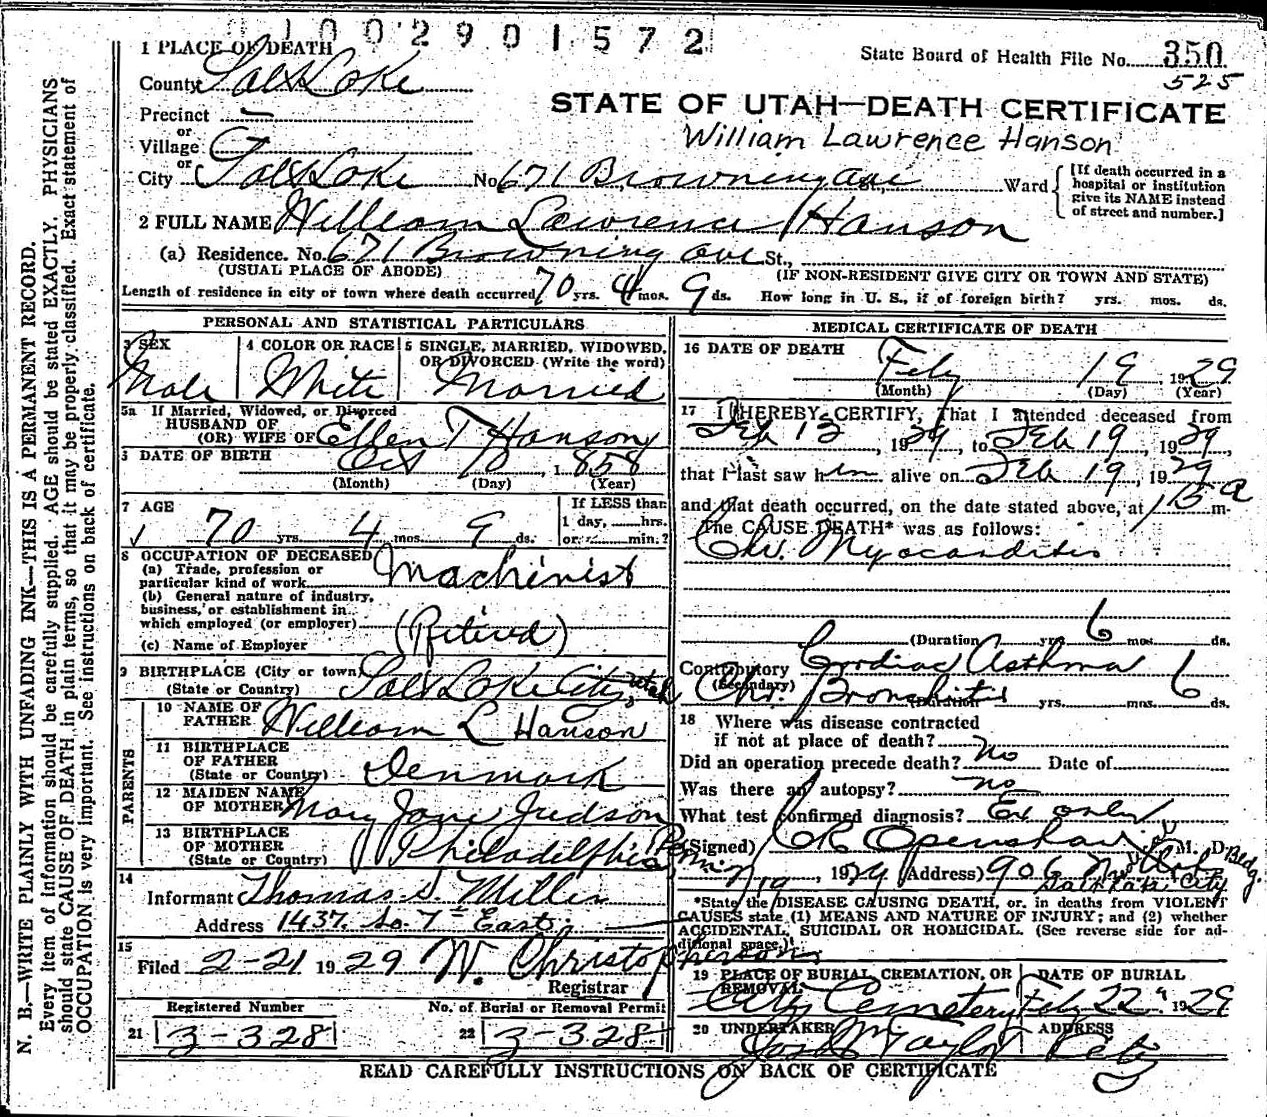 1002901572
State Board of Health File No. 350
525
STATE OF UTAH—DEATH CERTIFICATE
William Lawrence Hanson
1 PLACE OF DEATH
County Salt Lake
Precinct
or
Village
or
City Salt Lake No. 671 Browning Ave Ward
[If death occurred in a
hospital or institution
give its NAME instead
of street and number.]
2 FULL NAME William Lawrence Hanson
(a) Residence. No. 671 Browning Ave St.,
(USUAL PLACE OF ABODE) (IF NON-RESIDENT GIVE CITY OR TOWN AND STATE)
Length of residence in city or town where death occurred 70 yrs. 4 mos. 9 ds. How long in U. S., if of foreign birth? yrs. mos. ds.
PERSONAL AND STATISTICAL PARTICULARS
3 SEX
Male
4 COLOR OR RACE
White
5 SINGLE, MARRIED, WIDOWED,
OR DIVORCED (Write the word)
Married
5a If Married, Widowed, or Divorced
HUSBAND OF
(OR) WIFE OF Ellen T Hanson
DATE OF BIRTH Oct 10, 1858
(Month) (Day) (Year)
7 AGE
70 yrs. 4 mos. 9 ds.
If LESS than
1 day, hrs.
or min.?
8 OCCUPATION OF DECEASED
(a) Trade, profession or
particular kind of work Machinist
(b) General nature of industry,
business, or establishment in
which employed (or employer)
(Retired)
(c) Name of Employer
9 BIRTHPLACE (City or town) Salt Lake City, Utah
(State or Country)
PARENTS
10 NAME OF
FATHER William L Hanson
11 BIRTHPLACE
OF FATHER
(State or Country) Denmark
12 MAIDEN NAME
OF MOTHER Mary Jane Judson
13 BIRTHPLACE
OF MOTHER
(State or Country) Philadelphia
14
Informant Thomas S. Miller
Address 1437 So. 7th East
15
Filed 2-21 1929 W. Christopherson
Registrar
Registered Number
21 3-328
No. of Burial or Removal Permit
22 3-328
MEDICAL CERTIFICATE OF DEATH
16 DATE OF DEATH
Feby 19, 1929
(Month) (Day) (Year)
17 I HEREBY CERTIFY, That I attended deceased from
Feb 12, 1929, to Feb 19, 1929
that I last saw him alive on Feb 19, 1929
and that death occurred, on the date stated above, at 115 a m.
The CAUSE DEATH* was as follows:
Chr. Myocarditis
(Duration yrs. 6 mos. ds.
Contributory Cardiac Asthma
(Secondary) Chr. Bronchitis 6
(Duration) yrs. mos. ds.
18 Where was disease contracted
if not at place of death?
Did an operation precede death? no Date of
Was there an autopsy? no
What test confirmed diagnosis? Ex only
(Signed) Openshaw M. D.
2/19, 1929 (Address) 906 Bldg.
Salt Lake City
*State the DISEASE CAUSING DEATH, or, in deaths from VIOLENT
CAUSES state (1) MEANS AND NATURE OF INJURY; and (2) whether
ACCIDENTAL, SUICIDAL OR HOMICIDAL. (See reverse side for ad-
ditional space.)
19 PLACE OF BURIAL, CREMATION, OR
REMOVAL
City Cemetery
DATE OF BURIAL
Feby 22nd 1929
20 UNDERTAKER
Taylor
ADDRESS
City
READ CAREFULLY INSTRUCTIONS ON BACK OF CERTIFICATE
N. B.—WRITE PLAINLY WITH UNFADING INK—THIS IS A PERMANENT RECORD.
Every item of information should be carefully supplied. AGE should be stated EXACTLY. PHYSICIANS
should state CAUSE OF DEATH in plain terms, so that it may be properly classified. Exact statement of
OCCUPATION is very important. See instructions on back of certificate.